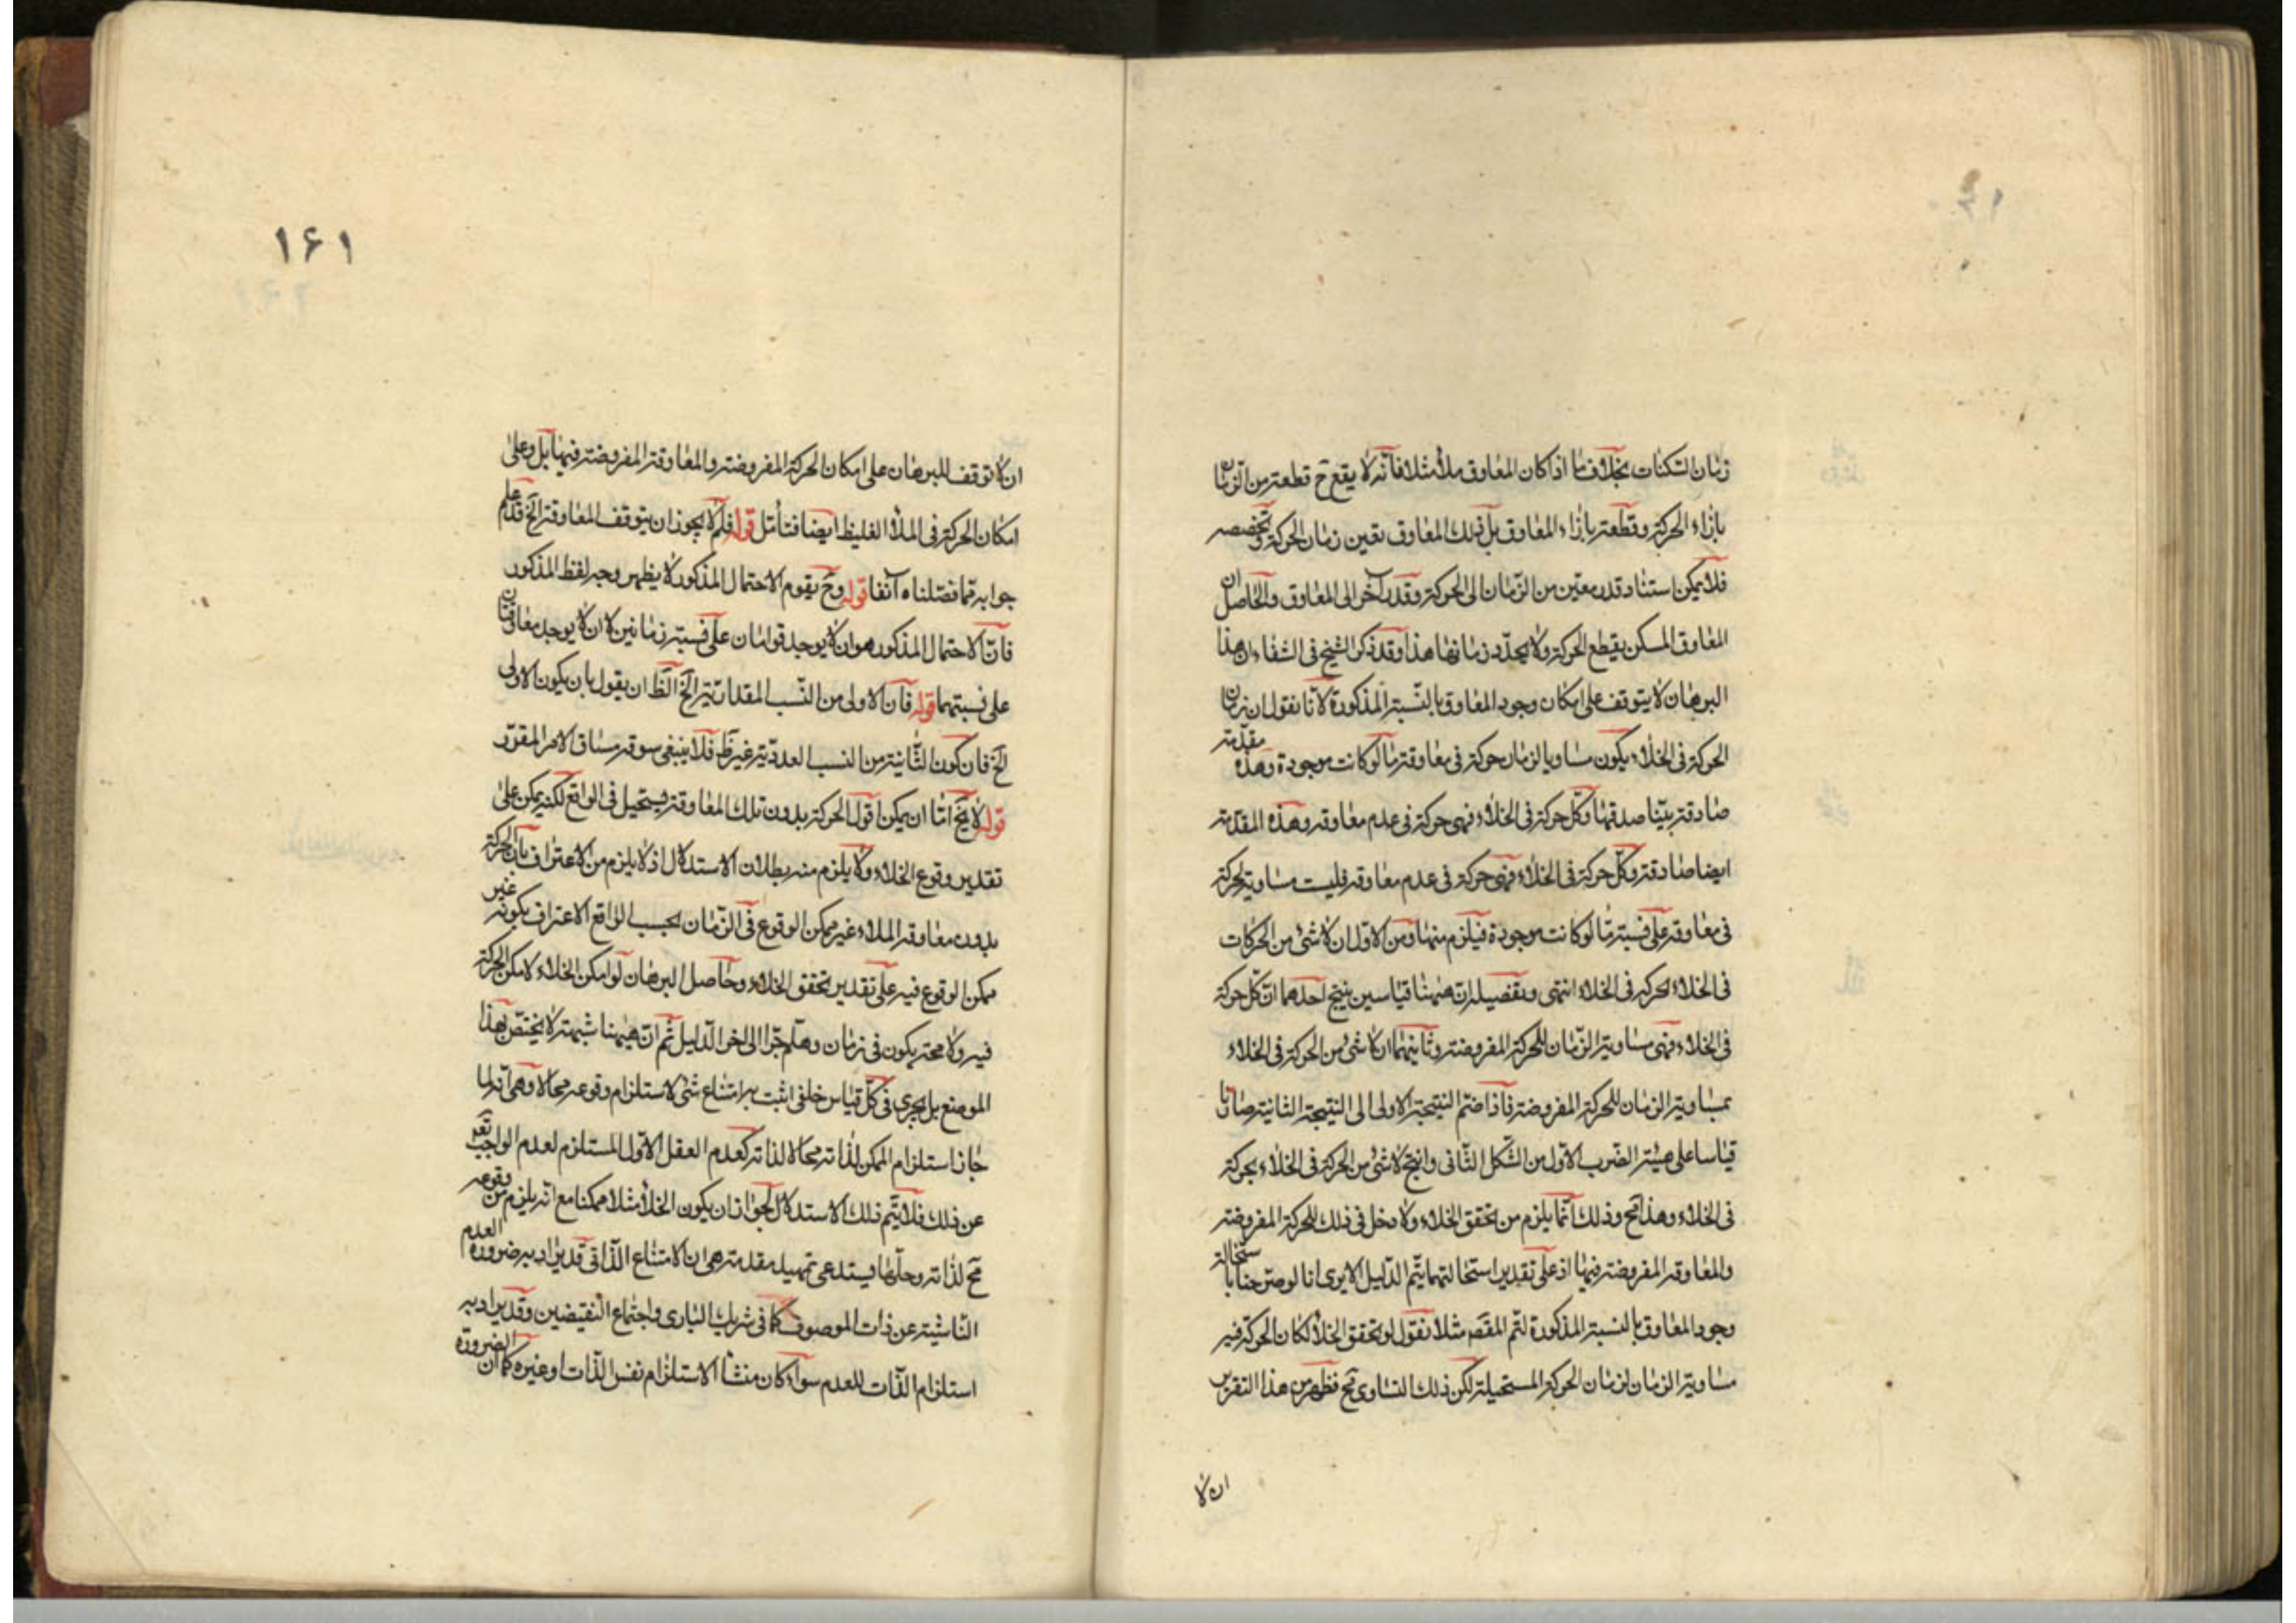 زمان السكنات بخلاف ما اذا كان المعاوق ملأ مثلا فانه لا يقع ح قطعة من الزمان
بازاء الحركة وقطعة بازاء المعاوق بل بذلك المعاوق تعين زمان الحركة وتخصصه
فلا يمكن استناد قدر معين من الزمان الى الحركة وقدر آخر الى المعاوق والحاصل ان
المعاوق المسكن يقطع الحركة ولا يحدد زمانها هذا وقد ذكر الشيخ فى الشفاء ان هذا
البرهان لا يتوقف على امكان وجود المعاوق بالنسبة المذكورة لانا نقول ان زمان
الحركة فى الخلاء يكون مساويا لزمان حركة فى معاوقة ما لو كانت موجودة وهذه مقدمة
صادقة بينا صدقها وكل حركة فى الخلاء فهى حركة فى عدم معاوقه وهذه المقدمة
ايضا صادقة وكل حركة فى الخلاء فهى حركة فى عدم معاوقه فليست مساوية لحركة
فى معاوقه على نسبة ما لو كانت موجودة فيلزم منها ومن الاول ان لا شئ من الحركات
فى الخلاء بحركة فى الخلاء انتهى وتفصيله ان ههنا قياسين ينتج احدهما ان كل حركة
فى الخلاء فهى مساوية الزمان للحركة المفروضة وثانيهما ان لا شئ من الحركة فى الخلاء
بمساوية الزمان للحركة المفروضة فاذا ضم النتيجة الاولى الى النتيجة الثانية صارتا
قياسا على هيئة الضرب الاول من الشكل الثانى وانتج لا شئ من الحركة فى الخلاء بحركة
فى الخلاء وهذا مح وذلك انما يلزم من تحقق الخلاء ولا دخل فى ذلك للحركة المفروضة
والمعاوقه المفروضة فيها اذ على تقدير استحالتهما يتم الدليل الا يرى انا لو صرحنا باستحالة
وجود المعاوق بالنسبة المذكورة لتم المقصد مثلا نقول لو تحقق الخلأ لكان الحركة فيه
مساوية الزمان لزمان الحركة المستحيلة لكن ذلك التساوى مح فظهر من هذا التقرير
ان لا
١۶١
ان لا توقف للبرهان على امكان الحركة المفروضة والمعاوقة المفروضة فيها بل وعلى
امكان الحركة فى الملأ الغليظ ايضا فتأمل قوله فلم لا يجوز ان يتوقف المعاوقة الخ قد علم
جوابه مما فصلناه آنفا قوله وح يقوم الاحتمال المذكور لا يظهر وجه لفظ المذكور
فان الاحتمال المذكور هو ان لا يوجد قوامان على نسبة زمانين لا ان لا يوجد معاوقتان
على نسبتهما قوله فان الاولى من النسب المقدارية الخ الظ ان يقول بان يكون الاولى
الخ فان كون الثانية من النسب العددية غير ظ فلا ينبغى سوقه مساق الامر المقرر
قوله لا يخ اما ان يمكن اقول الحركة بدون تلك المعاوقة يستحيل فى الواقع لكنه يمكن على
تقدير وقوع الخلاء ولا يلزم منه بطلان الاستدلال اذ لا يلزم من الاعتراف بان الحركة
بدون معاوقه الملاء غير ممكن الوقوع فى الزمان بحسب الواقع الاعتراف بكونه غير
ممكن الوقوع فيه على تقدير تحقق الخلاء وحاصل البرهان لو امكن الخلاء لامكن الحركة
فيه ولا محة يكون فى زمان وهلم جرا الى اخر الدليل ثم ان ههنا شبهة لا يختص بهذا
الموضع بل يجرى فى كل قياس خلفى اثبت به امتناع شئ لاستلزام وقوعه محالا وهى انه لما
جاز استلزام الممكن لذاته محالا لذاته كعدم العقل الاول المستلزم لعدم الواجب تعه
عن ذلك فلا يتم ذلك الاستدلال لجواز ان يكون الخلأ مثلا ممكنا مع انه يلزم من وقوعه
مح لذاته وحلها يستدعى تمهيد مقدمة هى ان الامتناع الذاتى قد يراد به ضرورة العدم
الناشية عن ذات الموصوف كما فى شريك البارى واجتماع النقيضين وقد يراد به
استلزام الذات للعدم سواء كان منشأ الاستلزام نفس الذات او غيره كما ان الضرورة